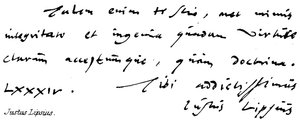 Talem enim te scio, nec minus
integritate et ingenii quadam virtute
clarum acceptumque, quàm doctrina.
LXXXIV. Tibi addictissimus
Iustus Lipsius
Justus Lipsius.